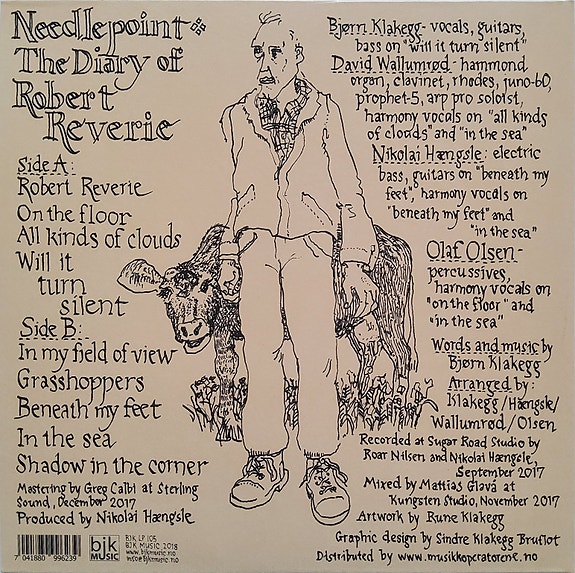 Needlepoint
The Diary of
Robert
Reverie
Side A:
Robert Reverie
On the floor
All kinds of clouds
Will it
turn
silent
Side B:
In my field of view
Grasshoppers
Beneath my feet
In the sea
Shadow in the corner
Mastering by Greg Calbi at Sterling
Sound, December 2017
Produced by Nikolai Hængsle
7 041880 996239
bjk
MUSIC
BJK LP 105
BJK MUSIC 2018
www.bjkmusic.no
info@bjkmusic.no
Bjørn Klakegg - vocals, guitars,
bass on "will it turn silent"
David Wallumrød - hammond
organ, clavinet, rhodes, juno-60,
prophet-5, arp pro soloist,
harmony vocals on "all kinds
of clouds" and "in the sea"
Nikolai Hængsle: electric
bass, guitars on "beneath my
feet", harmony vocals on
"beneath my feet" and
"in the sea"
Olaf Olsen -
percussives,
harmony vocals on
"on the floor" and
"in the sea"
Words and music by
Bjørn Klakegg
Arranged by:
Klakegg/Hængsle/
Wallumrød/Olsen
Recorded at Sugar Road Studio by
Roar Nilsen and Nikolai Hængsle,
September 2017
Mixed by Mattias Glavå at
Kungsten Studio, November 2017
Artwork by Rune Klakegg
Graphic design by Sindre Klakegg Bruflot
Distributed by www.musikkoperatorene.no